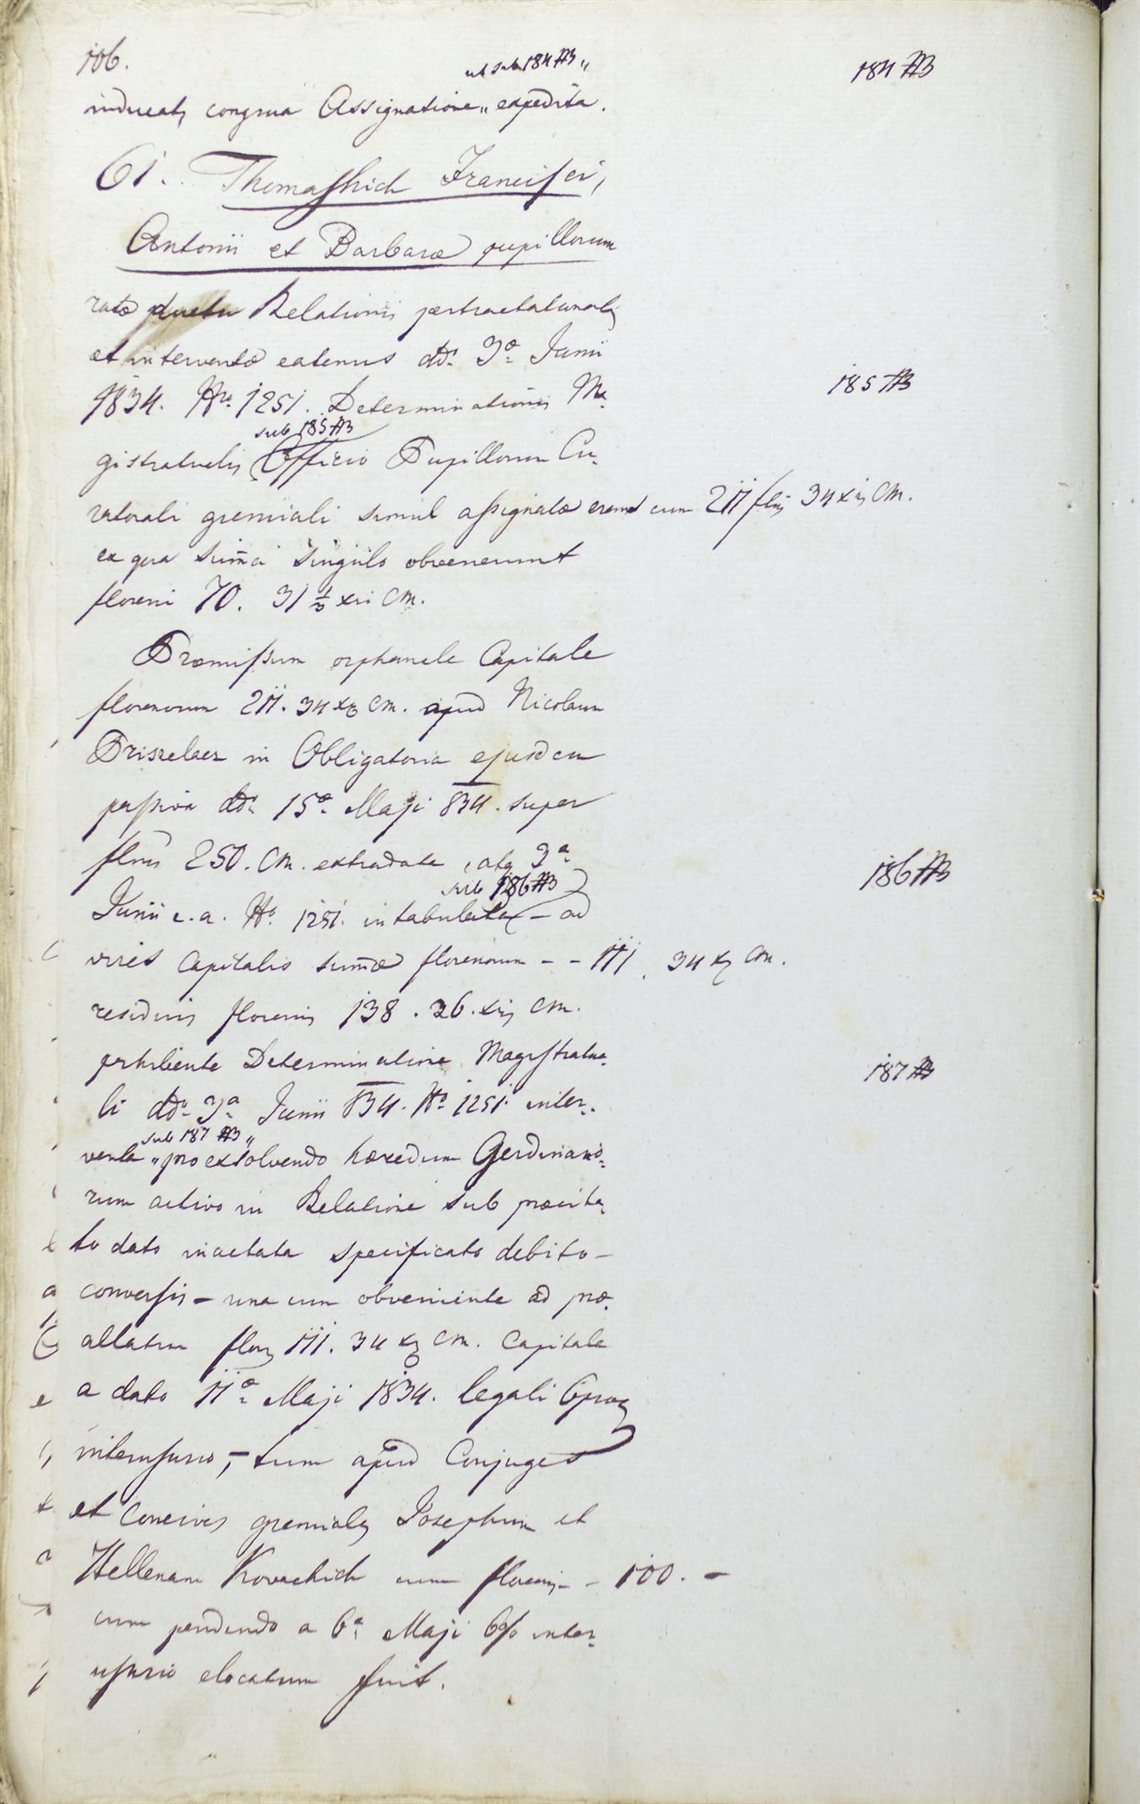 106.
ut sub 184 AB „ 184 AB
inducat, congrua Assignatione „ expedita.
61. Thomashich Francisci,
Antonii et Barbaræ pupillorum
ratæ ductu Relationis pertractationalis
et interventæ eatenus ddo. 3a Junii
1834. No. 1251. Determinationis Ma- 185 AB
sub 185 AB
gistratualis Officio Pupillorum Cu-
ratorali gremiali simul assignatæ erant cum 211 flnis 34 xris CM.
ex qua summa singulo obvenerunt
floreni 70. 31 1/3 xri CM.
Præmissum orphanale Capitale
florenorum 211. 34 xr CM. apud Nicolaum
in Obligatoria ejusdem
passiva ddo. 15a Maji 834. super
flnis 250. CM. extradata, atq 3a
sub 186 AB 186 AB
Junii c.a. No. 1251. intabulata – ad
vires Capitalis summæ florenorum - - 111. 34 xr CM.
residuis florenis 138. 26. xris CM.
perhibente Determinatione Magistratua- 187 AB
li ddo. 3a Junii 834. No. 1251. inter-
sub 187 AB „
venta „ pro exsolvendo hæredum Gerdiniano-
rum activo in Relatione sub præcita-
to dato inactata specificato debito –
conversis – una cum obveniente ad præ-
allatum flor 111. 34 xr CM. Capitale
a dato 11a Maji 1834. legali 6 proc
interusurio, – tum apud Conjuges
et Concives gremiales Josephum et
Hellenam Kovachich cum florenis - 100. –
cum pendendo a 6a Maji 6% inter-
usurio elocatum fuit.